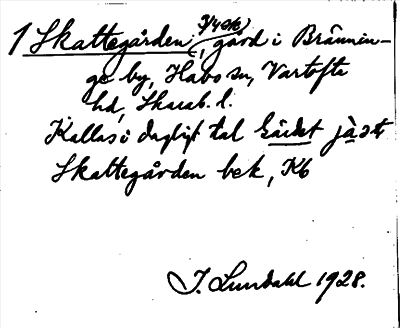 1 Skattegården, gård i Bränning-
ge by, Habo sn, Vartofta
hd, Skarab. l.
Kallas i dagligt tal Gärdet
Skattegården bek, Kb
J. Lundahl 1928.